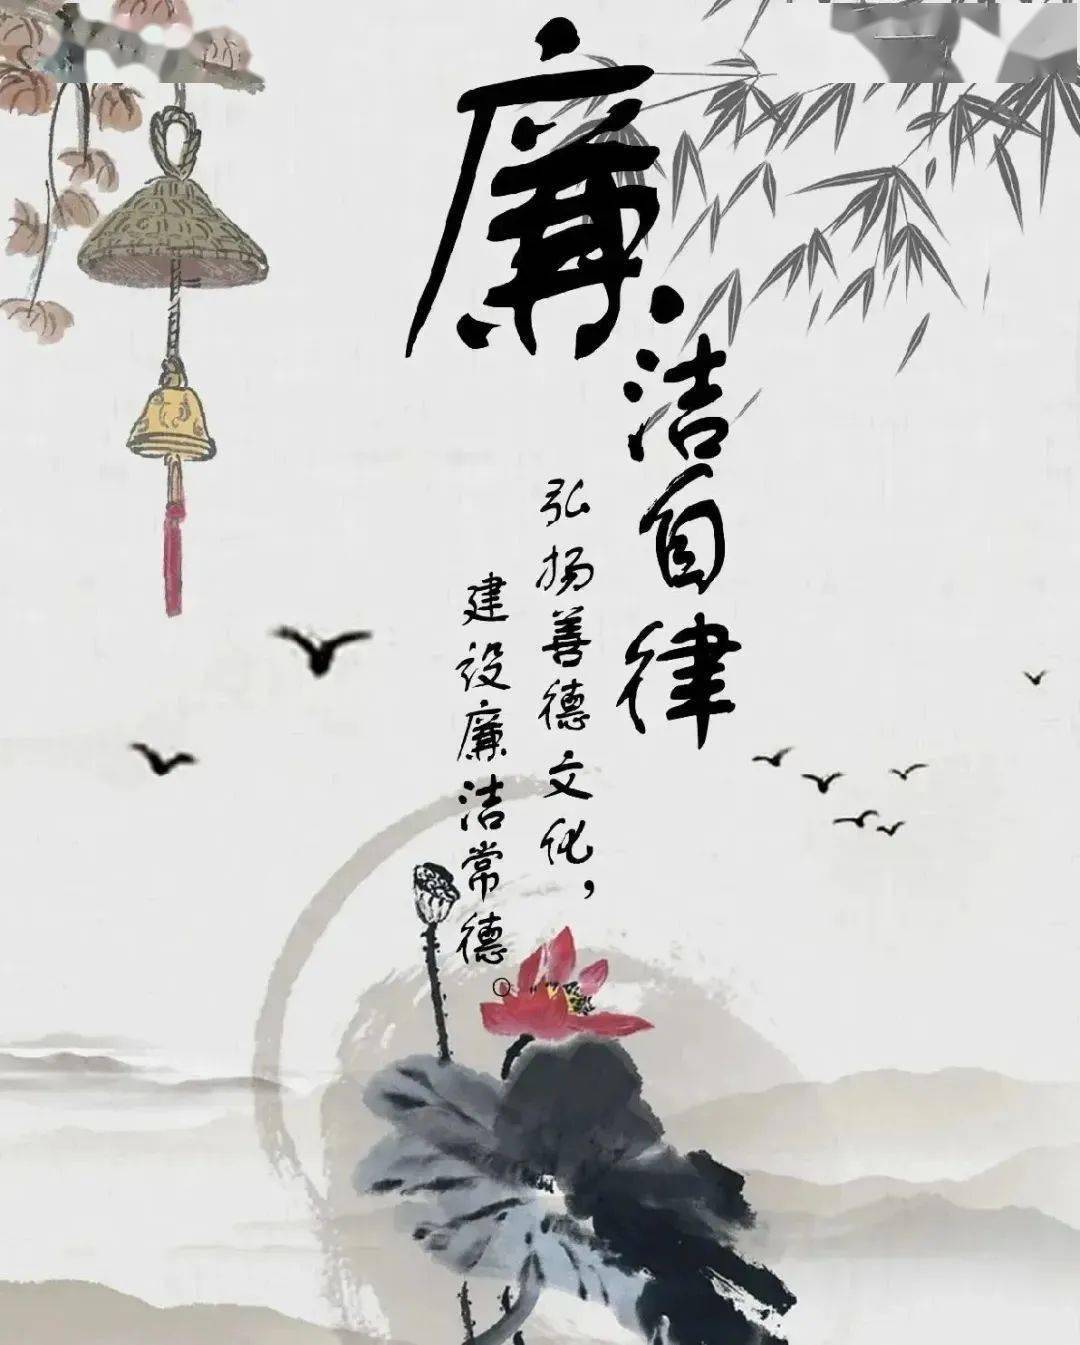 廉洁自律
弘扬善德文化，
建设廉洁常德。